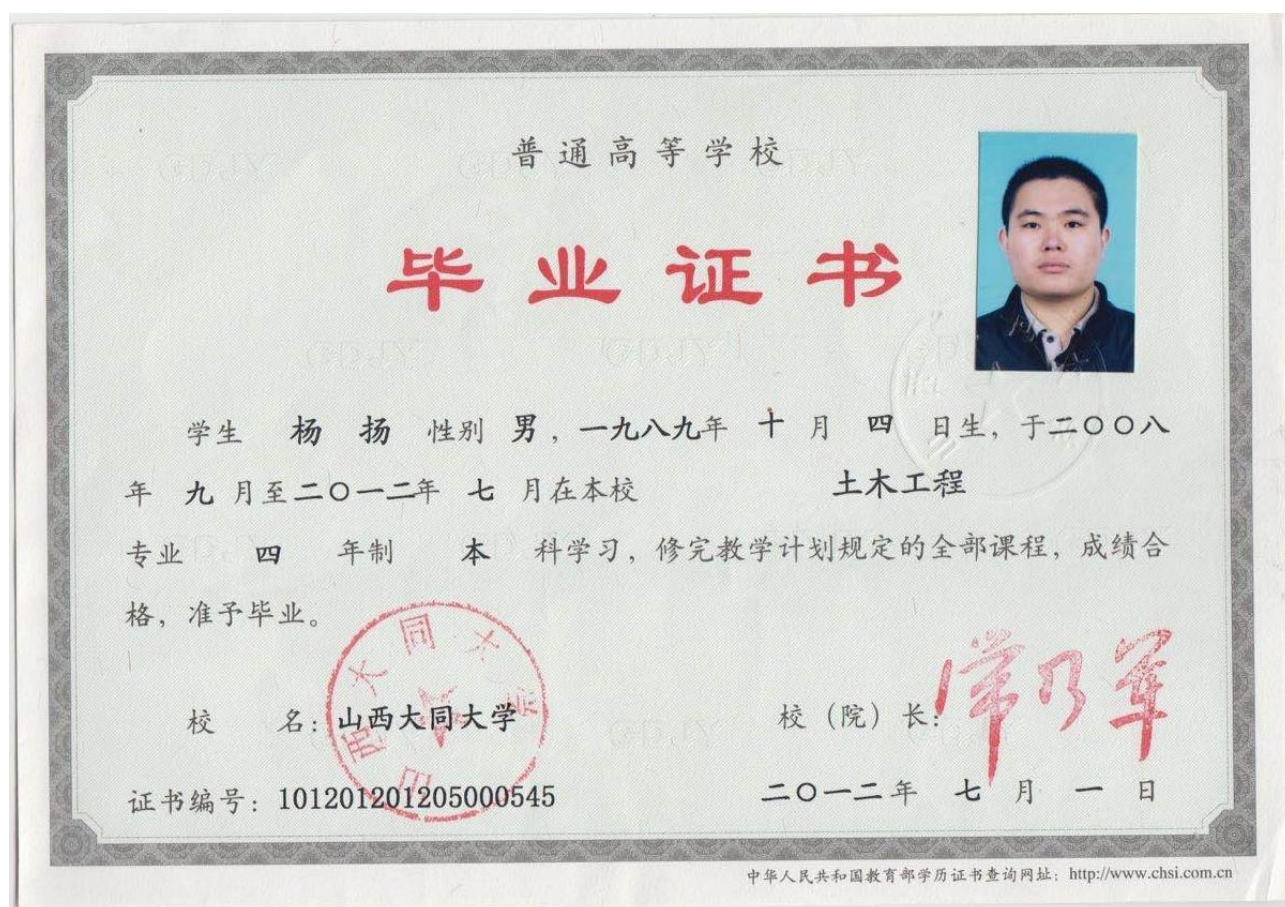 普通高等学校
毕业证书
学生 杨扬 性别 男，一九八九年 十 月 四 日生，于二〇〇八
年 九 月至二〇一二年 七 月在本校 土木工程
专业 四 年制 本 科学习，修完教学计划规定的全部课程，成绩合
格，准予毕业。
山西大同大学
校 名：山西大同大学 校（院）长：
证书编号：101201201205000545 二〇一二年 七 月 一 日
中华人民共和国教育部学历证书查询网址：http://www.chsi.com.cn